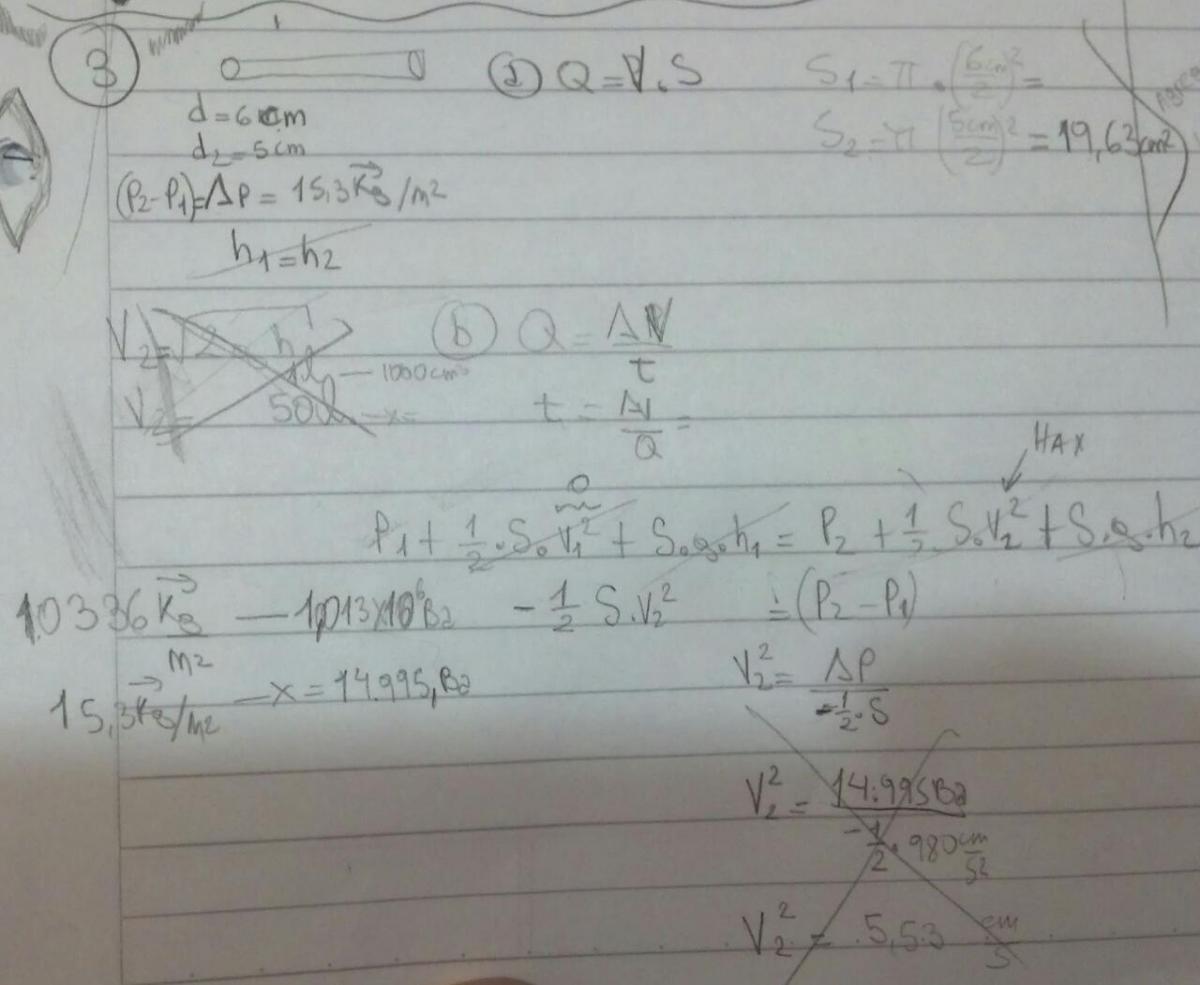 3
d = 6cm
d₂ = 5cm
(P₂-P₁)=ΔP = 15,3 K⃗g/m²
h₁ = h₂
a) Q = V . S
S₁ = π . (6cm/2)² =
S₂ = π (5cm/2)² = 19,63cm²
V₂ = √2 h
1l — 1000cm³
V₂ = 50l — x =
b) Q = ΔV/t
t = ΔV/Q =
HAX
0
P₁ + 1/2 . S . V₁² + S.g.h₁ = P₂ + 1/2 . S.V₂² + S.g.h₂
10336 K⃗g/m² — 1,013x10⁶Ba
- 1/2 S.V₂² = (P₂ - P₁)
15,3 K⃗g/m² — x = 14.995,Ba
V₂² = ΔP / -1/2 . S
V₂² = 14.995Ba / -1/2 . 980 cm/s²
V₂² = 5,53 cm/s